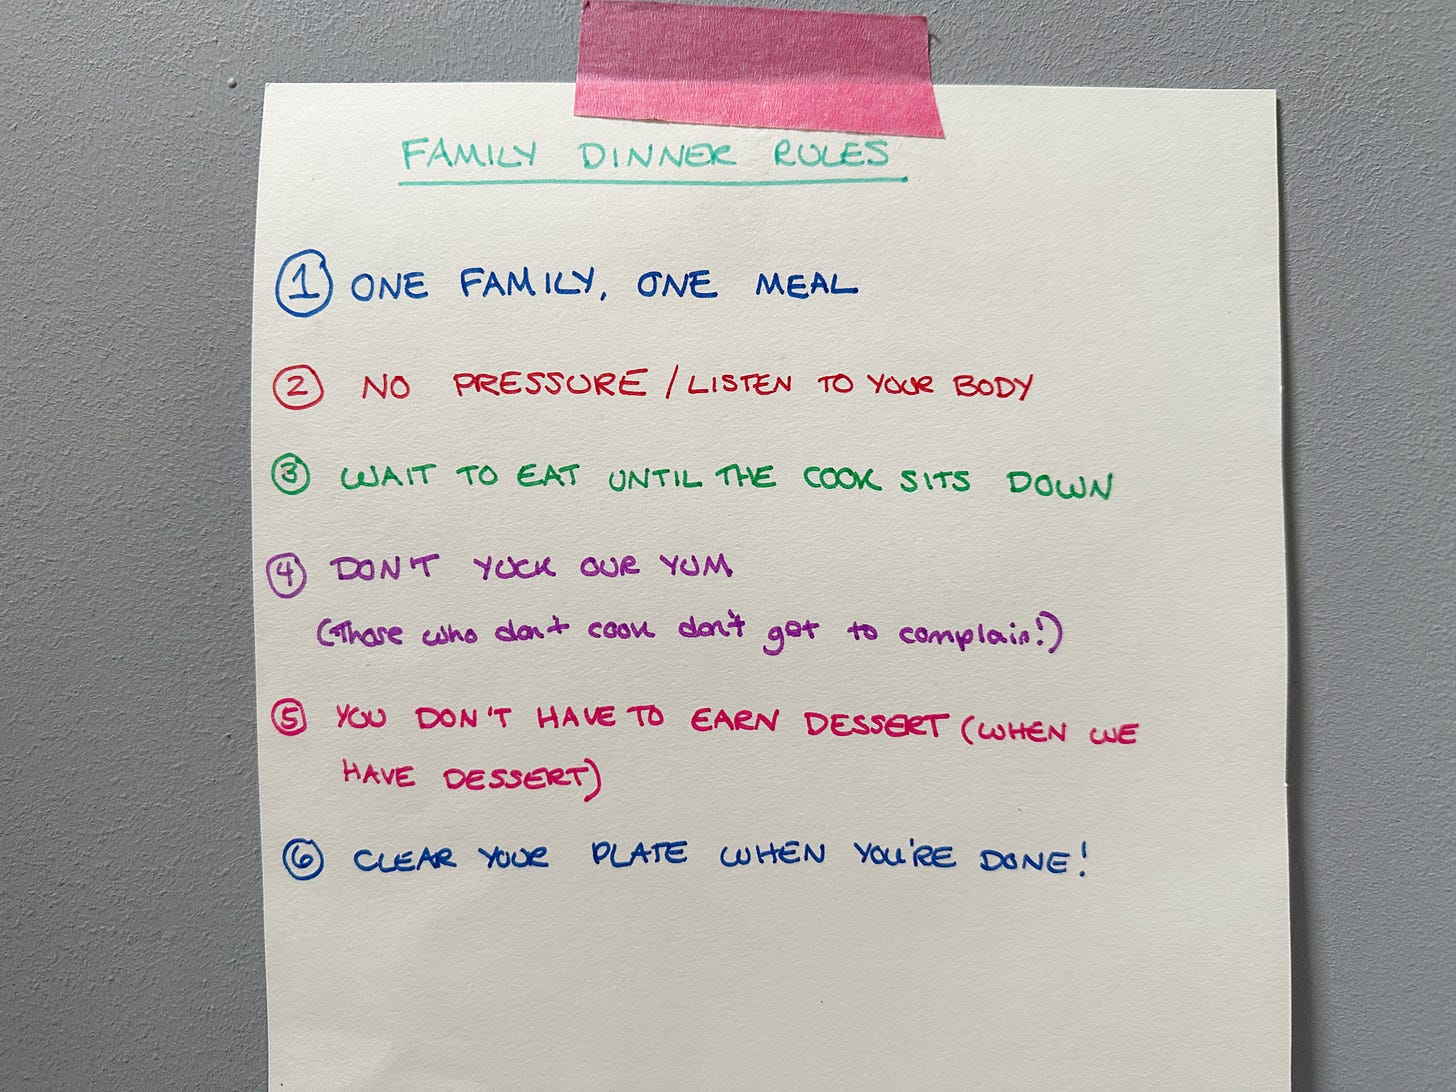 FAMILY DINNER RULES
① ONE FAMILY, ONE MEAL
② NO PRESSURE / LISTEN TO YOUR BODY
③ WAIT TO EAT UNTIL THE COOK SITS DOWN
④ DON'T YUCK OUR YUM
(Those who don't cook don't get to complain!)
⑤ YOU DON'T HAVE TO EARN DESSERT (WHEN WE
HAVE DESSERT)
⑥ CLEAR YOUR PLATE WHEN YOU'RE DONE!